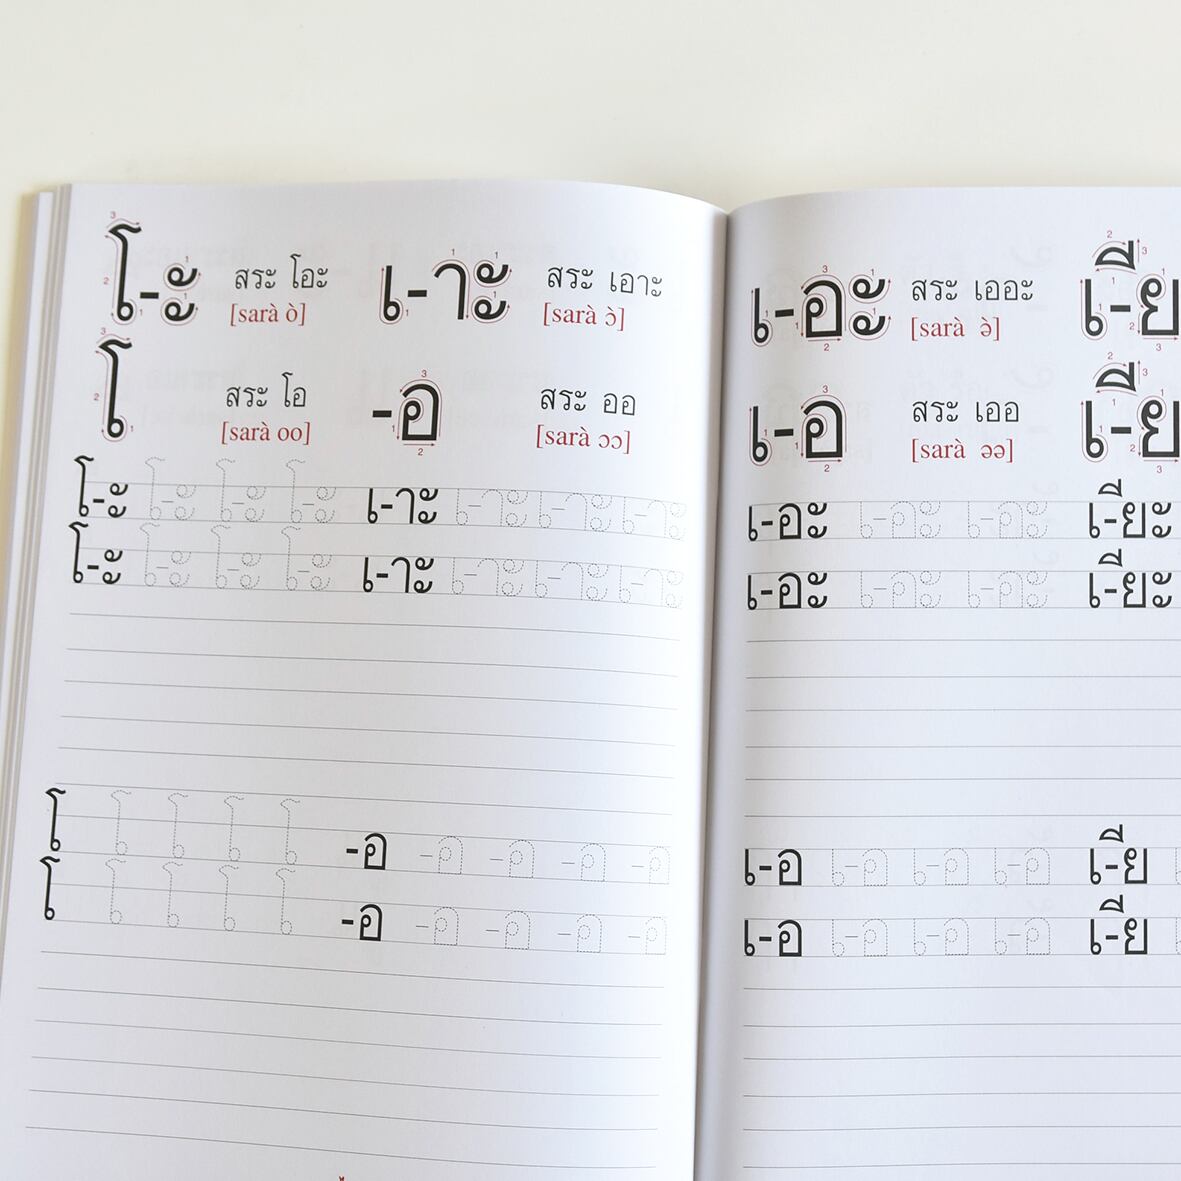 โ-ะ สระ โอะ เ-าะ สระ เอาะ
[sarà ò] [sarà ɔ̀]
โ สระ โอ -อ สระ ออ
[sarà oo] [sarà ɔɔ]
โ-ะ โ-ะ โ-ะ โ-ะ เ-าะ เ-าะ เ-าะ เ-าะ
โ-ะ โ-ะ โ-ะ โ-ะ เ-าะ เ-าะ เ-าะ เ-าะ
โ โ โ โ โ -อ -อ -อ -อ -อ
โ โ โ โ โ -อ -อ -อ -อ -อ
เ-อะ สระ เออะ เ-ีย
[sarà ə̀]
เ-อ สระ เออ เ-ีย
[sarà əə]
เ-อะ เ-อะ เ-อะ เ-ียะ
เ-อะ เ-อะ เ-อะ เ-ียะ
เ-อ เ-อ เ-อ เ-อ เ-ีย
เ-อ เ-อ เ-อ เ-อ เ-ีย